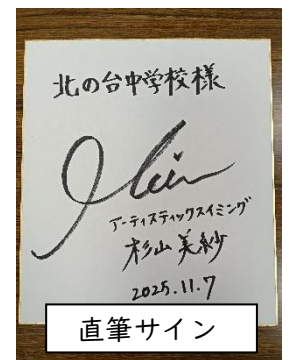 北の台中学校様
アーティスティックスイミング
杉山美紗
2025.11.7
直筆サイン